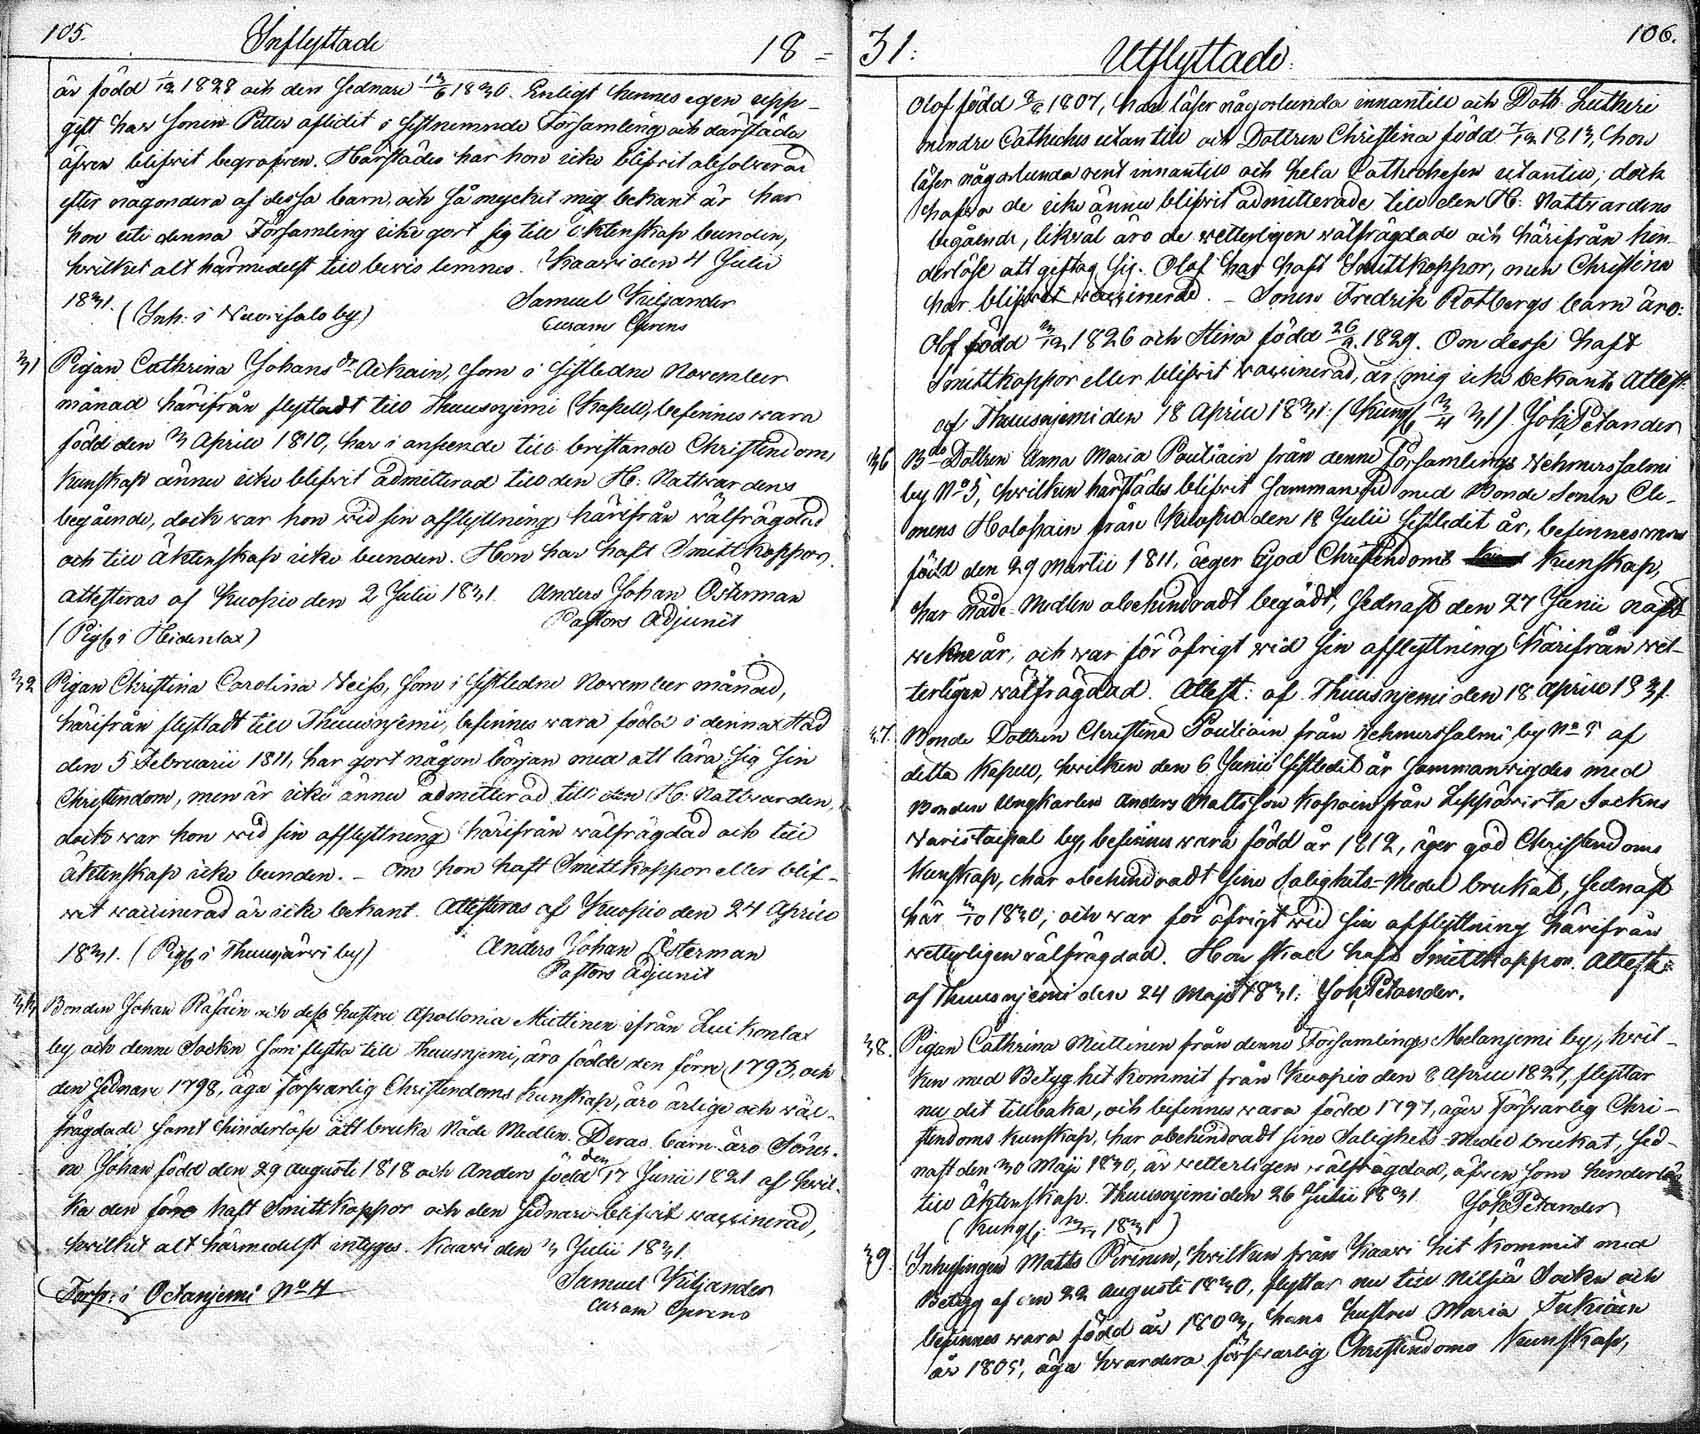 105.
Inflyttade
18 =
är född 1/12 1828 och den sednare 13/6 1830. Enligt hennes egen upp-
gift har sonen Petter aflidit i sistnemnde Församling och därstädes
äfven blifvit begrafven. Härstädes har hon icke blifvit absolverad
efter någondera af dessa barn, och så mycket mig bekant är har
hon uti denna Församling icke gort sig till äktenskap bunden,
hvilket alt härmedelst till bevis lemnas. Kaavi den 4 Julii
1831. (Inh: i Vuorisalo by) Samuel Kiljander
curam gerens
31 Pigan Cathrina Johans dr Ackain, som i sistledne November
månad härifrån flyttadt till Thuusnjemi Kapell, befinnes vara
född den 3 Aprill 1810, har i anseende till bristande Christendoms
kunskap ännu icke blifvit admitterad till den H: Nattvardens
begående, dock var hon vid sin afflyttning härifrån välfrägdad
och till äktenskap icke bunden. Hon har haft Smittkoppor.
attesteras af Kuopio den 2 Julii 1831. Anders Johan Österman
Pastors Adjunct
(Pig i Heidenlax)
32 Pigan Christina Carolina Neiss, som i sistledne November månad,
härifrån flyttadt till Thuusnjemi, befinnes vara född i denna Stad
den 5 Februarii 1811, har gort någon början med att lära sig sin
Christendom, men är icke ännu admitterad till den H: Nattvarden,
dock var hon vid sin afflyttning härifrån välfrägdad och till
äktenskap icke bunden. – Om hon haft Smittkoppor eller blif-
vit vaccinerad är icke bekant. Attesteras af Kuopio den 24 Aprill
1831. (Pig i Thuusjärvi by) Anders Johan Österman
Pastors Adjunct
33 Bonden Johan Räsäin och dess hustru Apollonia Miettinen ifrån Luikonlax
by och denne Sockn som flytta till Thuusnjemi, äro födde den förre 1793, och
den sednare 1798, äga försvarlig Christendoms kunskap, äro ärlige och väl-
frägdade samt hinderlöse att bruka Nåde Medlen. Deras barn äro Söner-
ne Johan född den 29 augusti 1818 och Anders född den 17 Junii 1821 af hvil-
ka den förre haft Smittkoppor och den sednare blifvit vaccinerad,
hvilket alt härmedelst intygas. Kaavi den 3 Julii 1831.
Samuel Kiljander
curam gerens
Torp: i Octanjemi No 4
31:
Utflyttade:
106.
Olof född 1807, han läser någorlunda innantill och Doth: Lutheri
mindre Cathches utantill och Dottren Christina född 1813, hon
läser någorlunda rent innantill och hela Cathchesen utantill, dock
hafva de icke ännu blifvit admitterade till den H: Nattvardens
begående, likväl äro de vetterligen välfrägdade och härifrån hin-
derlöse att giftag sig. Olof har haft Smittkoppor, men Christina
har blifvit vaccinerad. – Sonens Fredrik Rotbergs barn äro:
Olof född 1826 och Stina född 26/9 1829. Om desse haft
Smittkoppor eller blifvit vaccinerad, är mig icke bekant. Attest:
af Thuusnjemi den 18 Aprill 1831. (Kung 3/4 31) Joh: Petander
36 Bde Dottren Anna Maria Poutiain från denne Församlings Vehmersalmi
by No 5, hvilken härstädes blifvit sammanvigd med Bonde Sonen Cle-
mens Holopain från Kuopio den 18 Julii sistledit år, befinnes vara
född den 29 Martii 1811, äger God Christendoms kunskap,
har Nåde Medlen obehindradt begådt, sednast den 27 Junii näst-
vekne år, och var för öfrigt vid sin afflyttning härifrån vet-
terligen välfrägdad. Attest: af Thuusnjemi den 18 Aprill 1831.
37. Bonde Dottren Christina Poutiain från Vehmersalmi by No 5 af
detta Kapell, hvilken den 6 Junii sistledit år sammanvigdes med
Bonden Ungkarlen Anders Mattsson Kopoin från Leppävirta Sockns
Varistaipal by, befinnes vara född år 1812, äger god Christendoms
Kunskap, har obehindradt sine Salighets-Medel brukat, sednast
här 3/10 1830, och var för öfrigt vid sin afflyttning härifrån
vetterligen välfrägdad. Hon skall haft Smittkoppor. Attest:
af Thuusnjemi den 24 Maji 1831: Joh: Petander.
38. Pigan Cathrina Miettinen från denne Församlings Melanjemi by, hvil-
ken med Betyg hit kommit från Kuopio den 8 Aprill 1827, flyttar
nu dit tillbaka, och befinnes vara född 1797, äger försvarlig Chri-
stendoms kunskap, har obehindradt sine Salighets-Medel brukat, sed-
nast den 30 Maji 1830, är vetterligen välfrägdad, äfven som hinderlös
till äktenskap. Thuusnjemi den 26 Julii 1831. Joh: Petander
(Kung: 1831)
39. Inhysingen Matts Pirinen, hvilken från Kaavi hit kommit med
Betyg af den 22 augusti 1830, flyttar nu till Nilsiä Sockn och
befinnes vara född år 1803, hans hustru Maria Tukiain
år 1805, äga hvardera försvarlig Christendoms Kunskap,